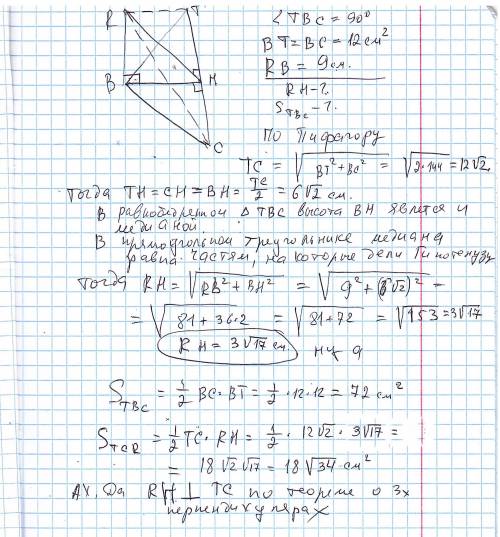 R T
B H
C
∠TBC = 90°
BT = BC = 12 см²
RB = 9 см.
RH - ?
S_TBC - ?
По Пифагору
TC = √(BT² + BC²) = √(2·144) = 12√2
Тогда TH = CH = BH = TC/2 = 6√2 см.
В равнобедренном Δ TBC высота BH явлется и
медианой.
В прямоугольном треугольнике медиана
равна частям, на которые дели гипотенузу
Тогда RH = √(RB² + BH²) = √(9² + (6√2)²) =
= √(81 + 36·2) = √(81 + 72) = √153 = 3√17
RH = 3√17 см. ну а
S_TBC = 1/2 BC · BT = 1/2 · 12 · 12 = 72 см²
S_TCR = 1/2 TC · RH = 1/2 · 12√2 · 3√17 =
= 18√2 √17 = 18√34 см²
Ах, Да RH ⊥ TC по теореме о 3х
перпендикулярах